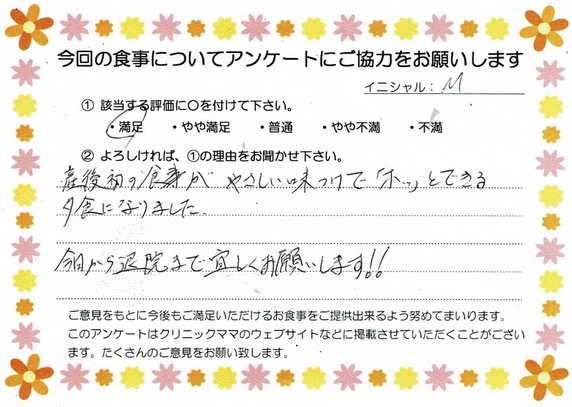 今回の食事についてアンケートにご協力をお願いします
イニシャル：M
① 該当する評価に○を付けて下さい。
・満足 ・やや満足 ・普通 ・やや不満 ・不満
② よろしければ、①の理由をお聞かせ下さい。
産後初の食事が やさしい味つけで「ホッ」とできる
夕食になりました。
今日から退院まで宜しくお願いします!!
ご意見をもとに今後もご満足いただけるお食事をご提供出来るよう努めてまいります。
このアンケートはクリニックママのウェブサイトなどに掲載させていただくことがござい
ます。たくさんのご意見をお願い致します。